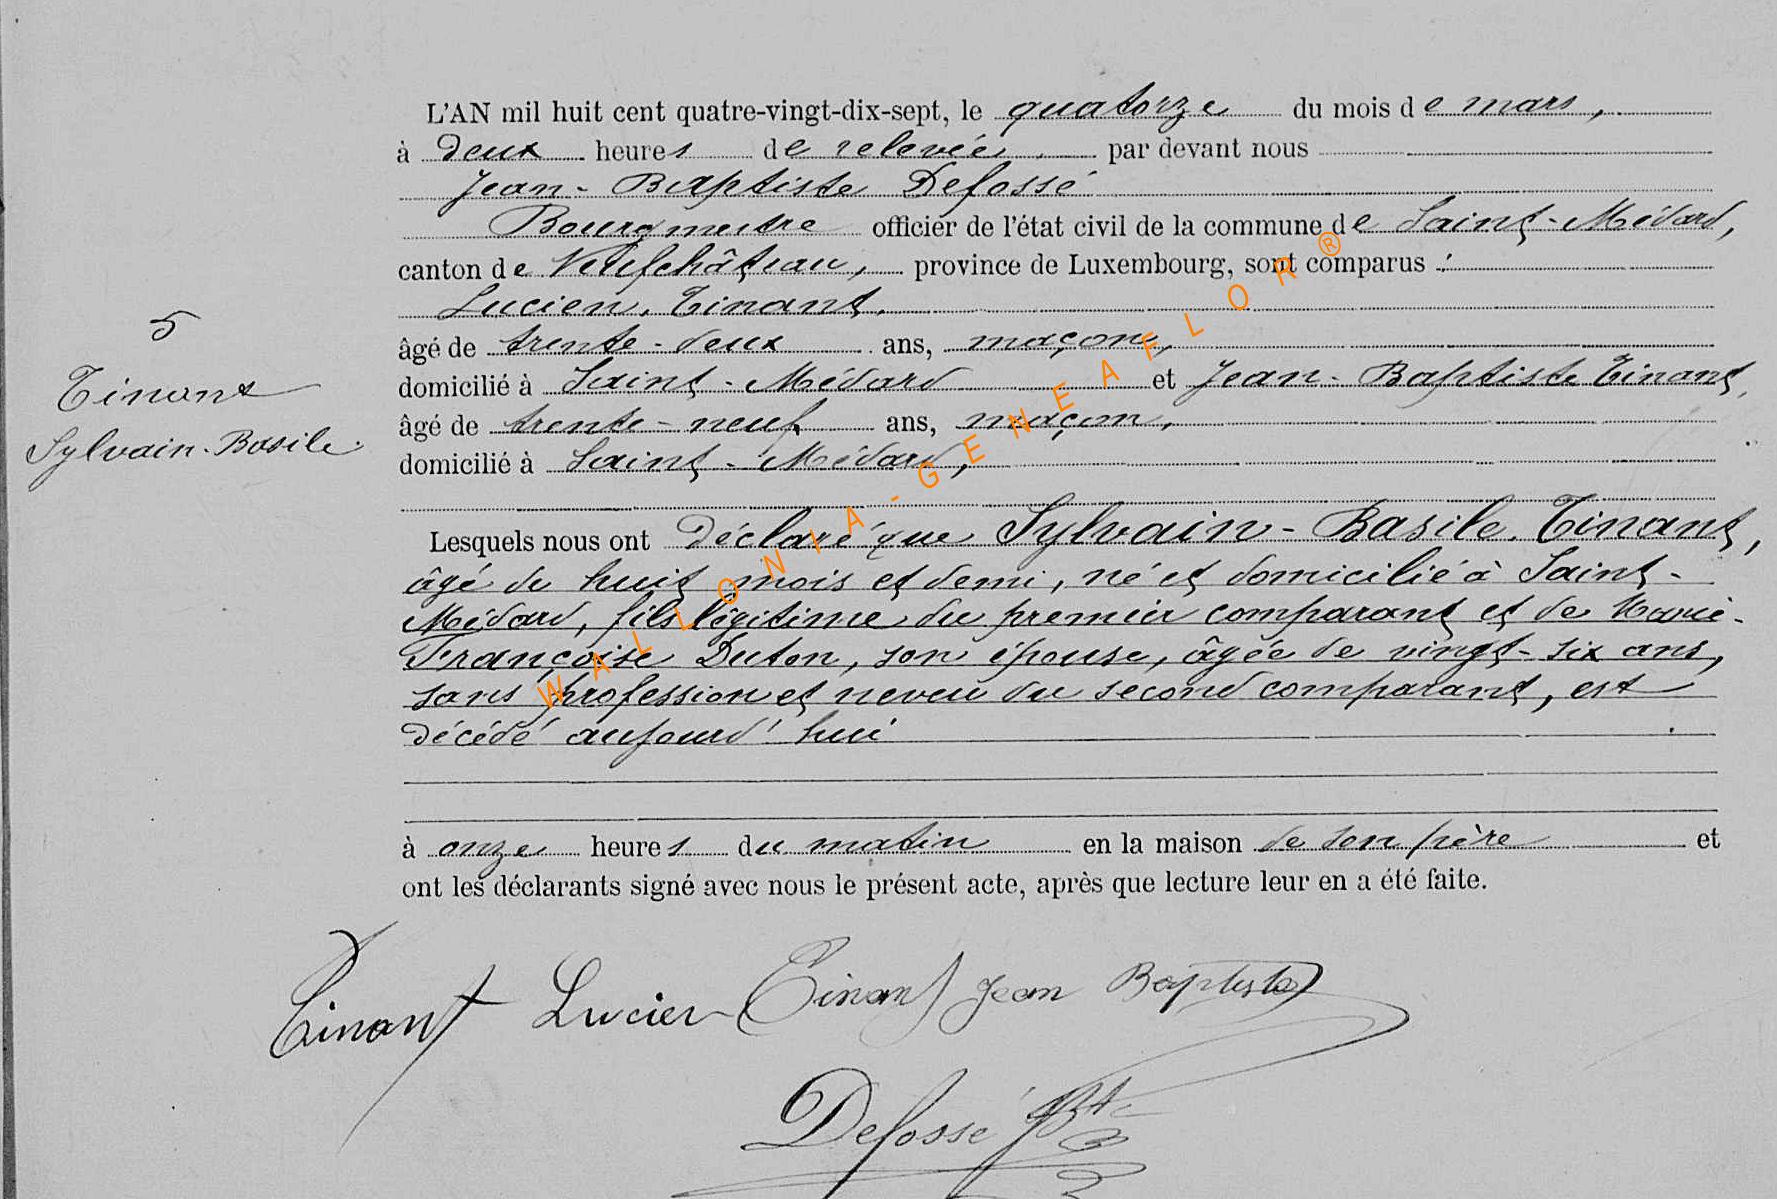 L'AN mil huit cent quatre-vingt-dix-sept, le quatorze du mois de mars,
à deux heures de relevée, par devant nous
Jean-Baptiste Defossé
Bourgmestre officier de l'état civil de la commune de Saint-Médard,
canton de Neufchâteau, province de Luxembourg, sont comparus :
Lucien Tinant,
âgé de trente-deux ans, maçon,
domicilié à Saint-Médard et Jean-Baptiste Tinant,
âgé de trente-neuf ans, maçon,
domicilié à Saint-Médard,
5
Tinant
Sylvain-Basile
Lesquels nous ont déclaré que Sylvain-Basile Tinant,
âgé de huit mois et demi, né et domicilié à Saint-
Médard, fils légitime du premier comparant et de Marie-
Françoise Duton, son épouse, âgée de vingt-six ans,
sans profession et neveu du second comparant, est
décédé aujourd'hui
à onze heures du matin en la maison de son père et
ont les déclarants signé avec nous le présent acte, après que lecture leur en a été faite.
Tinant Lucien Tinant Jean Baptiste
Defossé JBte
WALLONIA-GENEAFLOR®